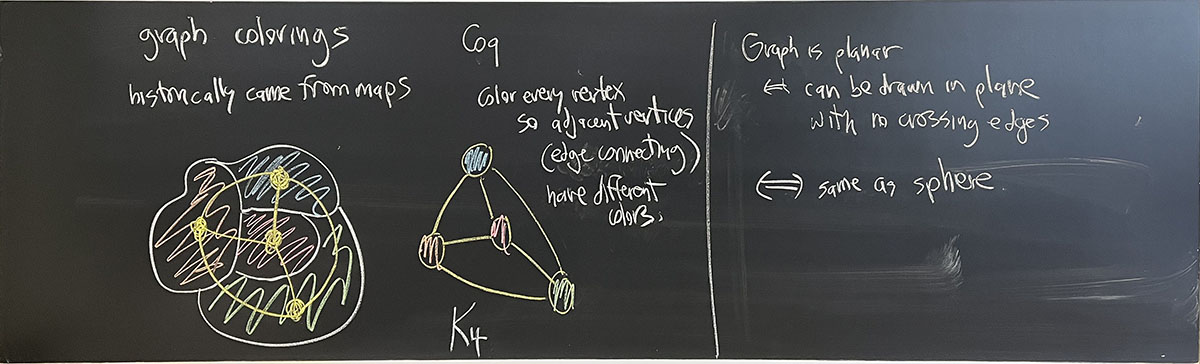 graph colorings
historically came from maps
Coq
color every vertex
so adjacent vertices
(edge connecting)
have different
colors.
K4
Graph is planar
⇔ can be drawn in plane
with no crossing edges
⇔ same as sphere.